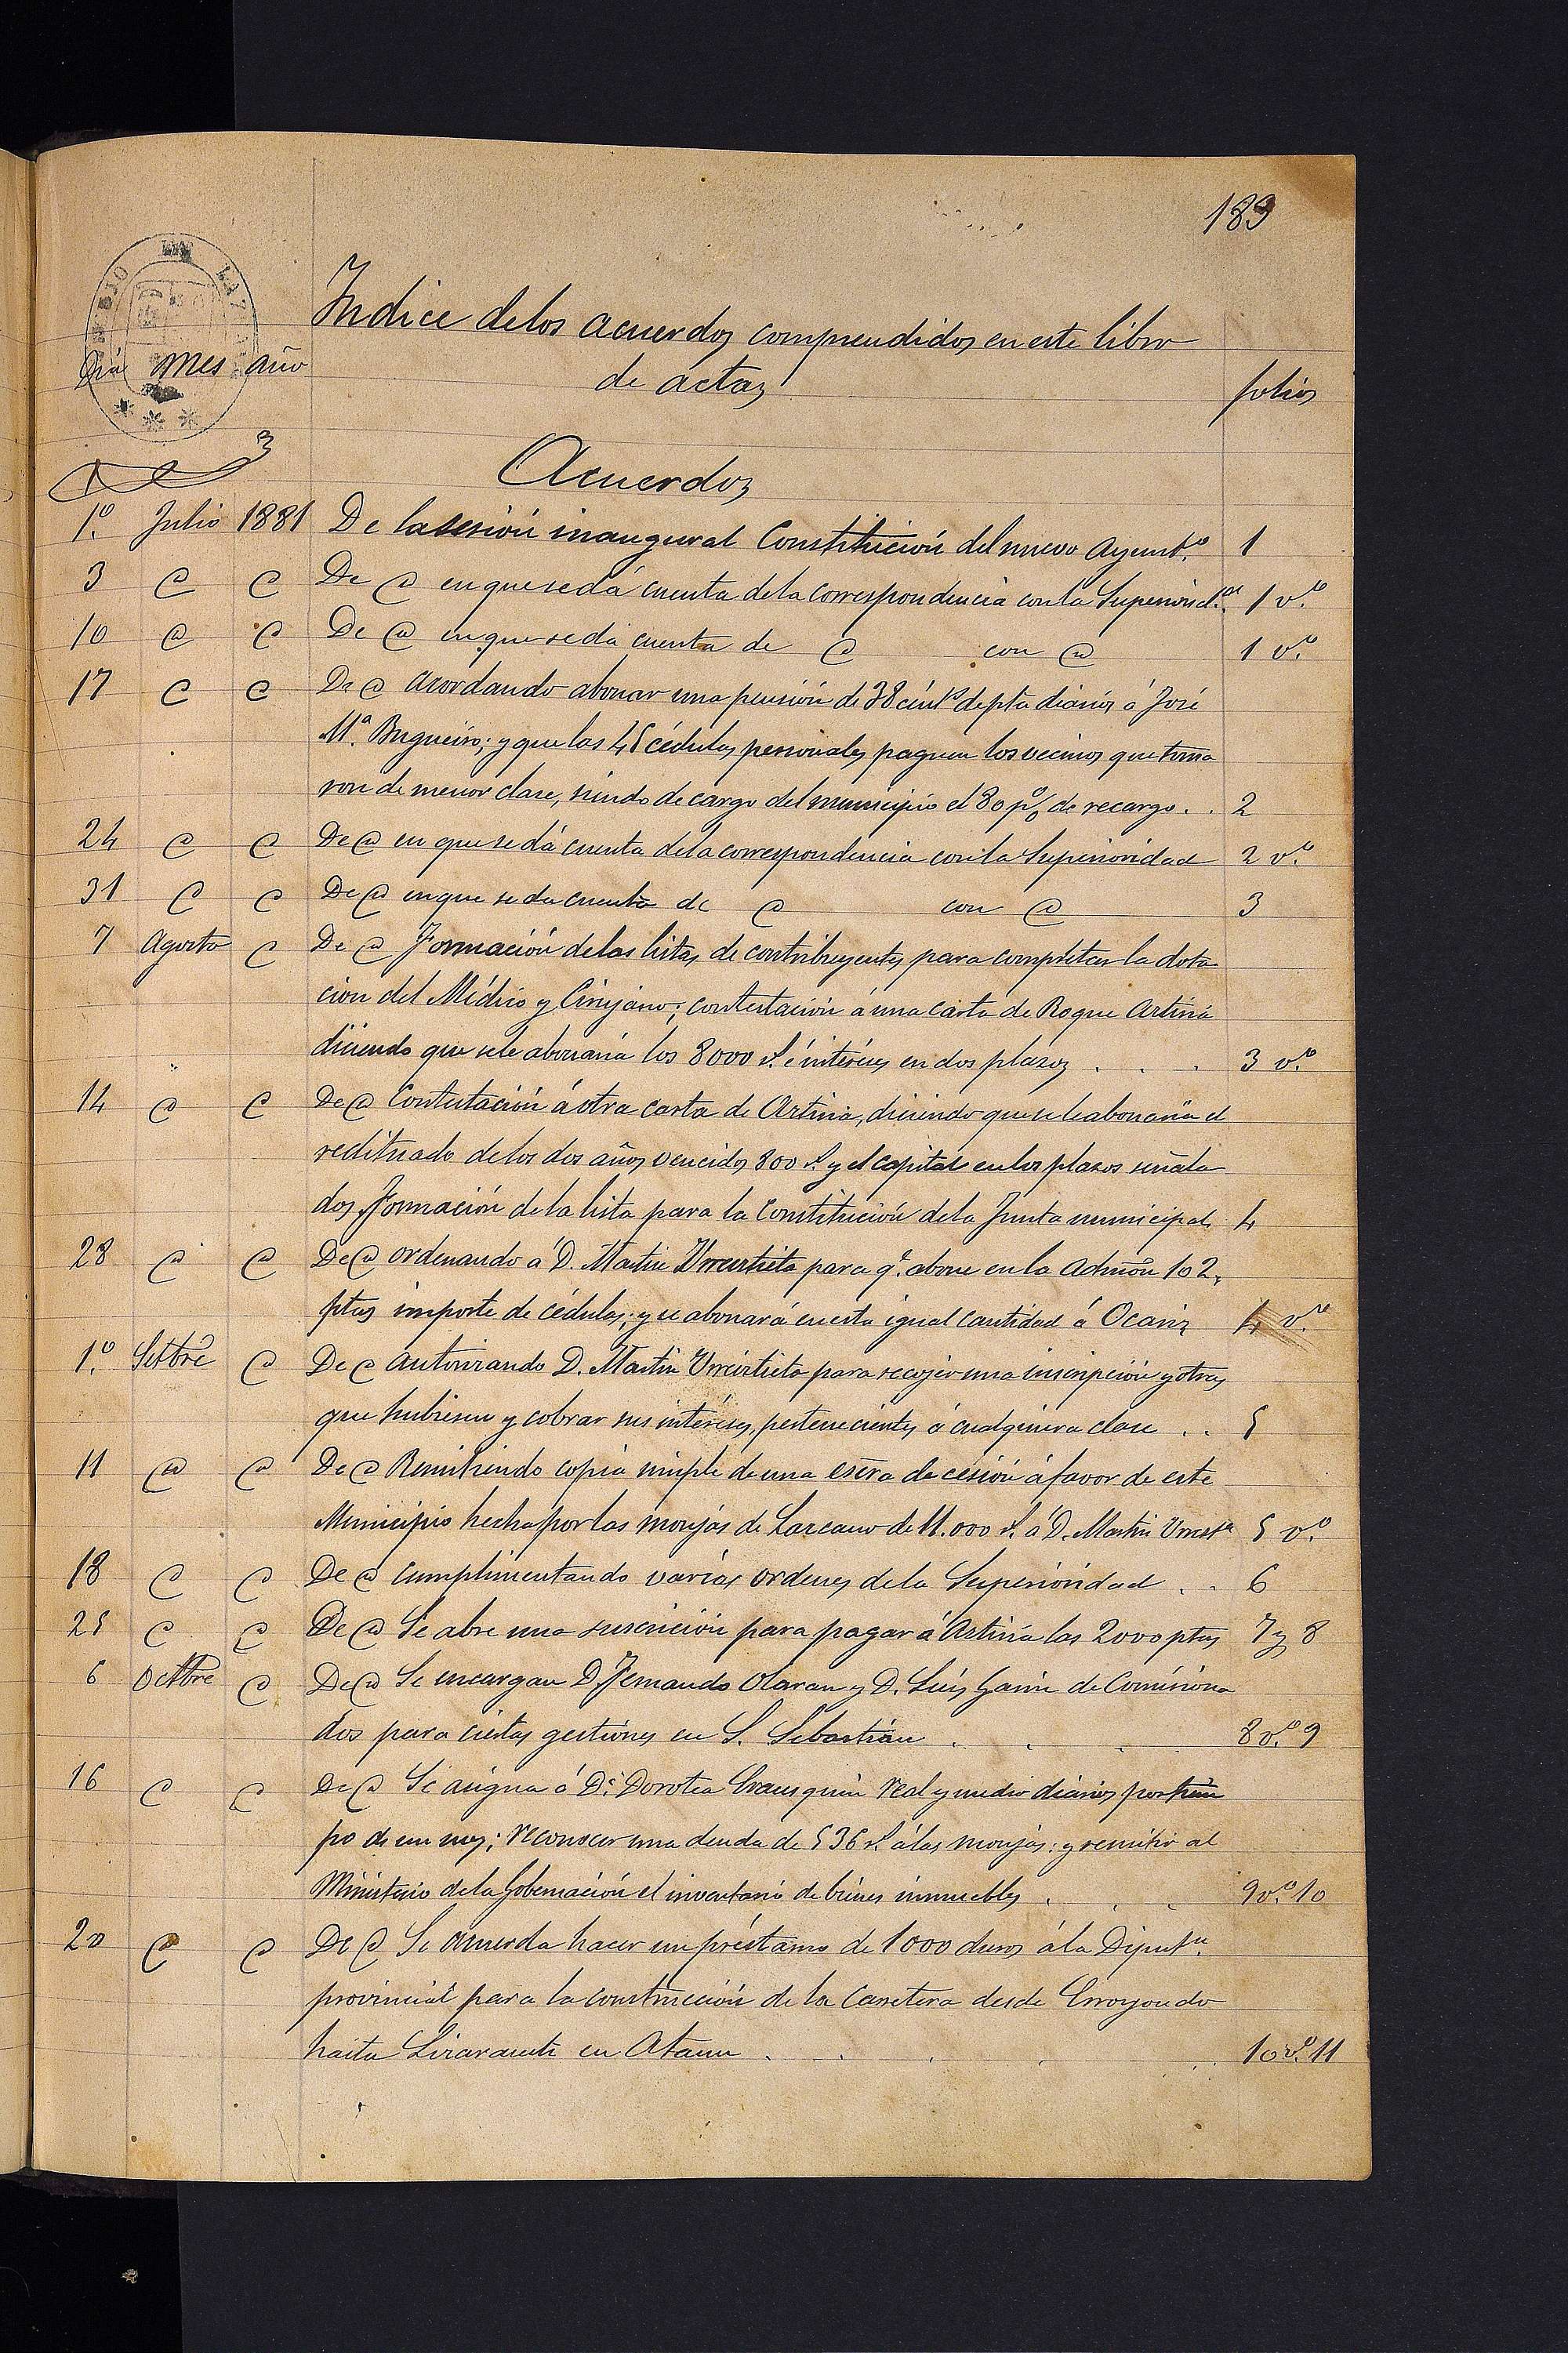 189
Indice de los acuerdos comprendidos en este libro
Dia mes año de actas folios
Acuerdos
1.º Julio 1881 De la sesión inaugural Constitución del nuevo Ayunt.º 1
3 @ @ De @ en que se dá cuenta de la correspondencia con la Superiorid.ad 1 v.to
10 @ @ De @ en que se da cuenta de @ con @ 1 v.to
17 @ @ De @ acordando abonar una pensión de 38 cént.s de pta diarios á José
M.ª Brugueiro; y que las 45 cédulas personales paguen los vecinos que toma
ron de menor clase, siendo de cargo del municipio el 80 p% de recargo . . 2
24 @ @ De @ en que se dá cuenta de la correspondencia con la Superioridad 2 v.to
31 @ @ De @ en que se da cuenta de @ con @ 3
7 Agosto @ De @ Formación de las listas de contribuyentes para completar la dota
cion del Médico y Cirujano; contestación á una carta de Roque Artiria
diciendo que se le abonaria los 8000 r.s é intéreses en dos plazos . . . 3 v.to
14 @ @ De @ Contestación á otra carta de Artiria, diciendo que se le abonaria el
redituado de los dos años vencidos 800 r.s y el capital en los plazos señala
dos Formación de la lista para la Constitución de la Junta municipal 4
28 @ @ De @ ordenando á D. Martin Urreiztieta para q.e abone en la Admón 102,
ptas importe de cédulas; y se abonará en esta igual cantidad á Ocariz 4 v.to
1.º Setbre @ De @ autorizando D. Martin Urreiztieta para recojer una inscripción y otras
que hubiesen y cobrar sus intéreses, pertenecientes á cualquiera clase . . 5
11 @ @ De @ Remitiendo copia simple de una esc̃ra de cesión á favor de este
Municipio hecha por las monjas de Lazcano de 11.000 r.s á D. Martin 5 v.to
18 @ @ De @ cumplimentando varias ordenes de la Superioridad . . 6
25 @ @ De @ Se abre una suscrición para pagar á Artiria las 2000 ptas 7 y 8
6 Octbre @ De @ Se encargan D. Fernando Olaran y D. Luis Garin de Comisiona
dos para ciertas gestiones en S. Sebastián . . . 8 v.to 9
16 @ @ De @ Se asigna á D.ª Dorotea Erausquin real y medio diarios por tiem
po de un mes; reconocer una deuda de 536 r.s á las monjas: y remitir al
Ministerio de la Gobernación el inventario de bienes inmuebles . . . 9 v.to 10
20 @ @ De @ Se acuerda hacer un préstamo de 1000 duros á la Diput.n
provincial para la construcción de la Carretera desde Erroyondo
hasta en Ataun . . . . 10 v.to 11